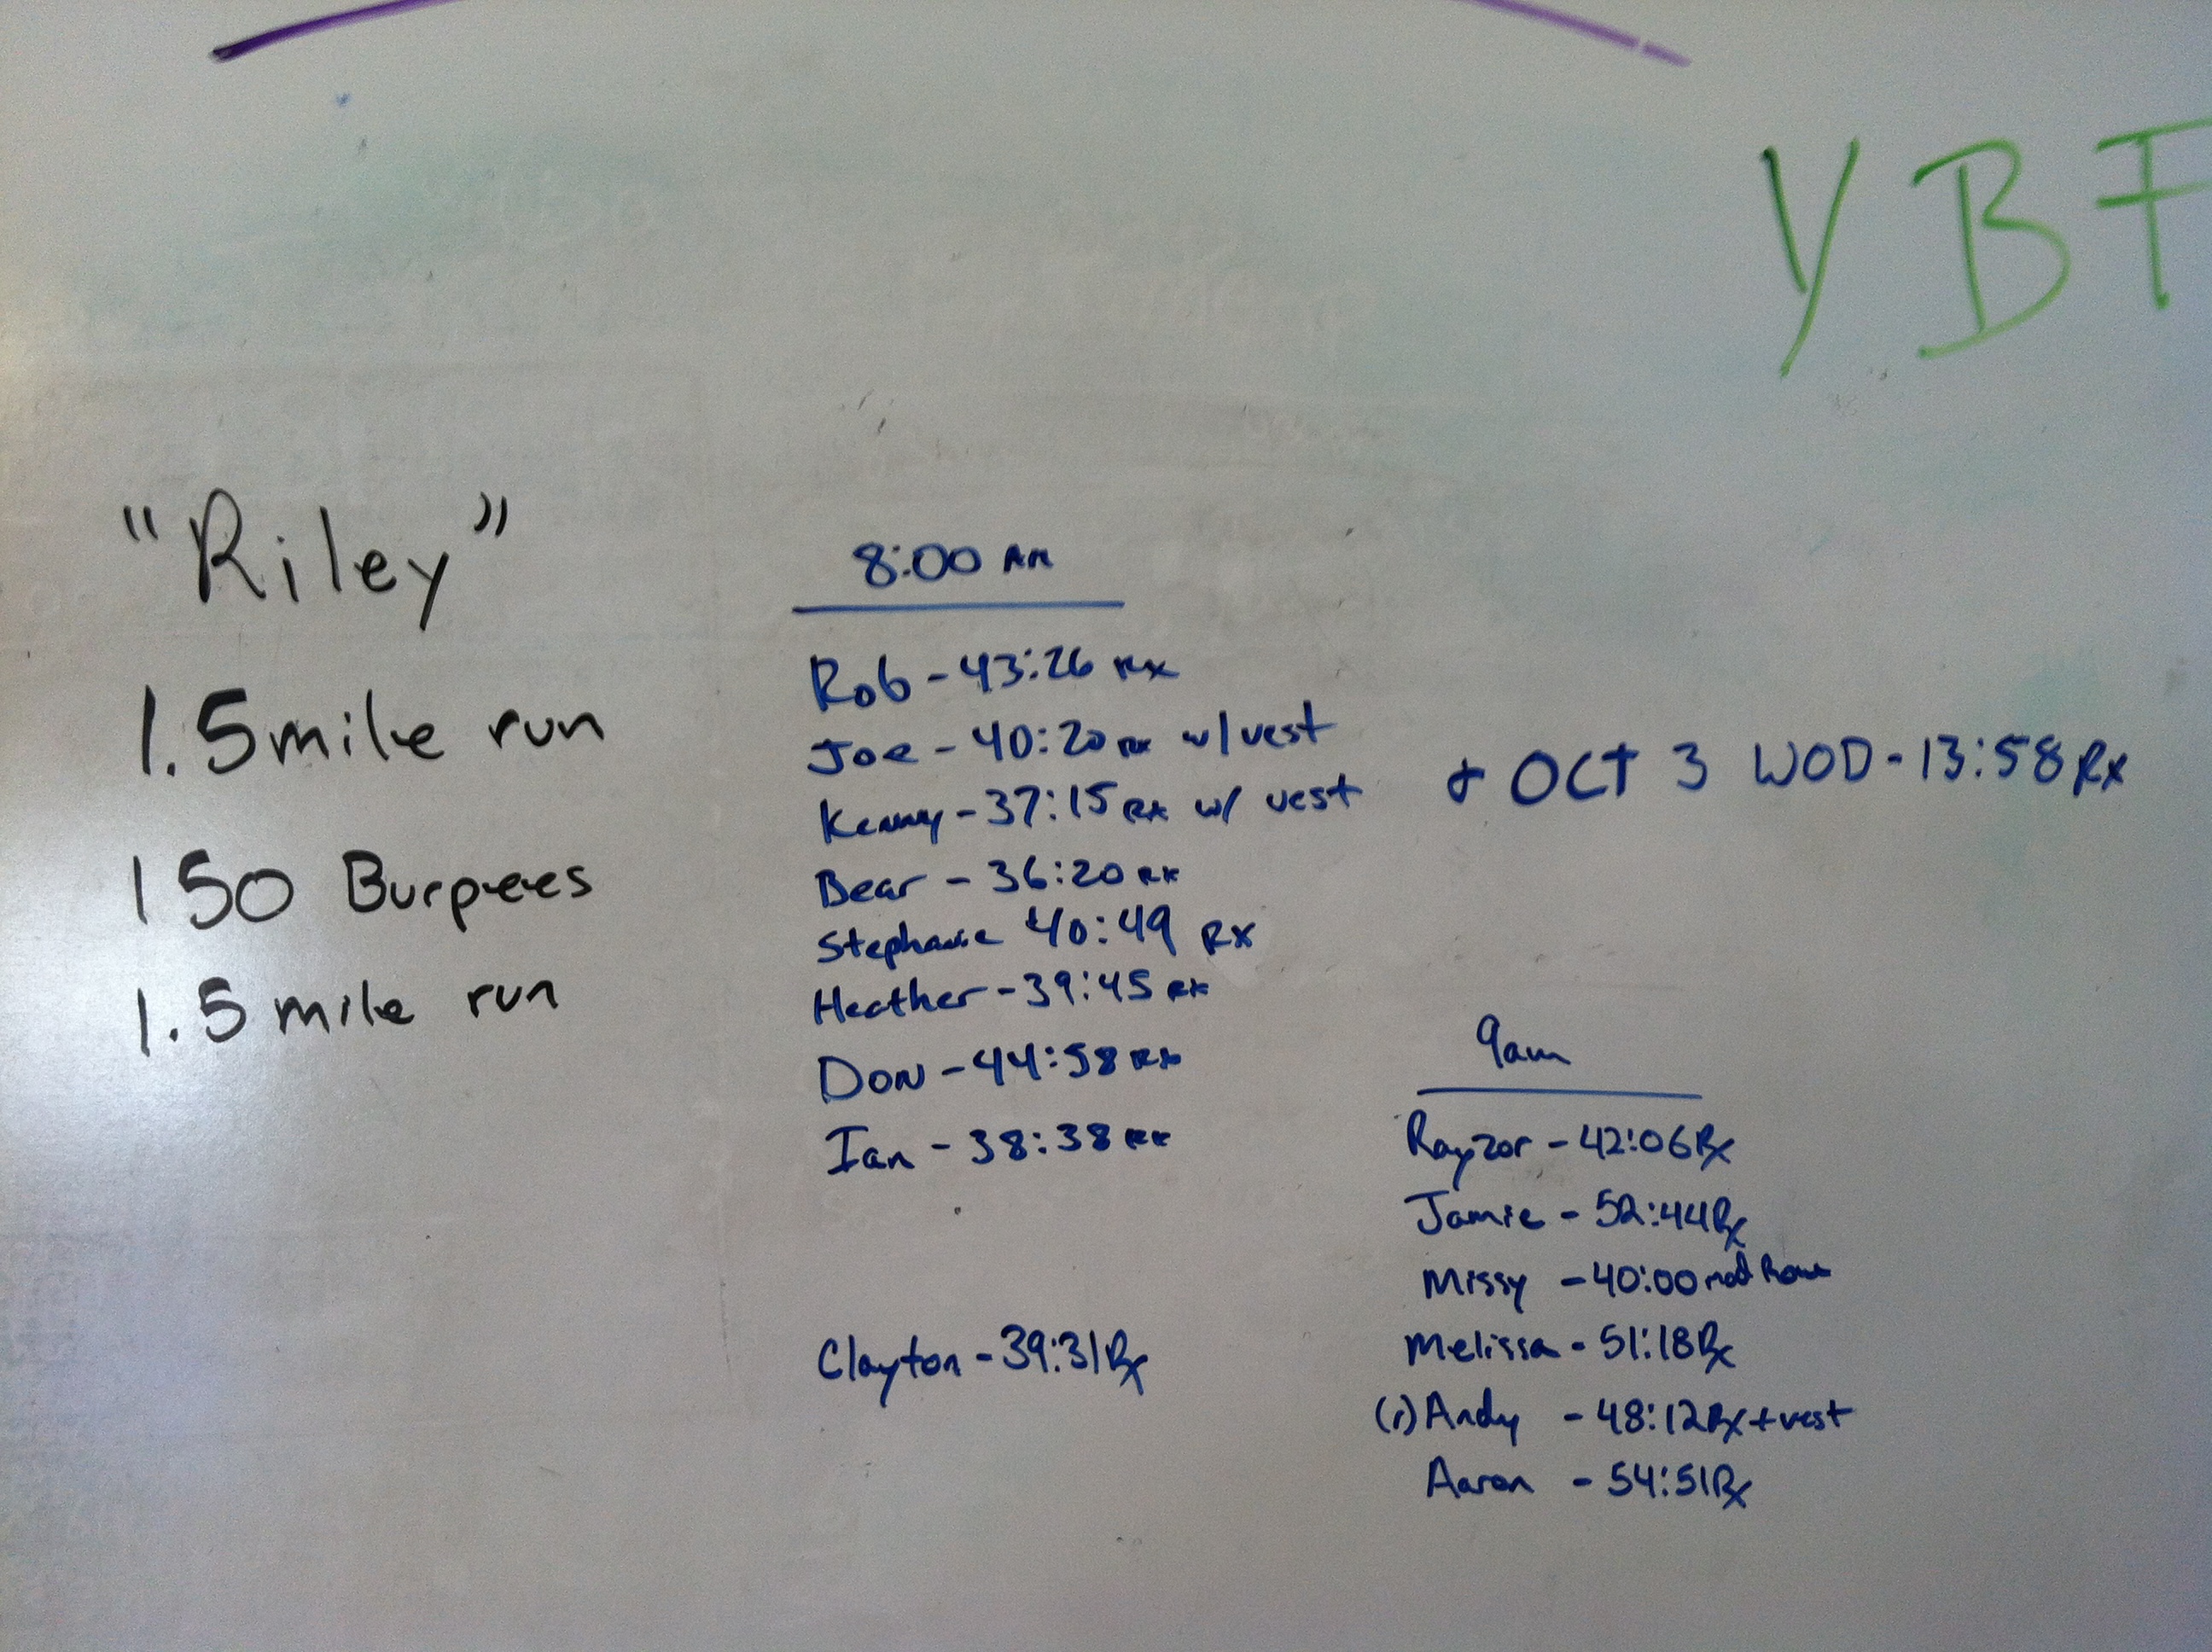 YBF
"Riley"
1.5 mile run
150 Burpees
1.5 mile run
8:00 AM
Rob - 43:26 Rx
Joe - 40:20 Rx w/ vest
Kenny - 37:15 Rx w/ vest & OCT 3 WOD - 13:58 Rx
Bear - 36:20 Rx
Stephanie 40:49 Rx
Heather - 39:45 Rx
Don - 44:58 Rx
Ian - 38:38 Rx
Clayton - 39:31 Rx
9am
Rayzor - 42:06 Rx
Jamie - 52:44 Rx
Missy - 40:00 mod
Melissa - 51:18 Rx
(1) Andy - 48:12 Rx + vest
Aaron - 54:51 Rx